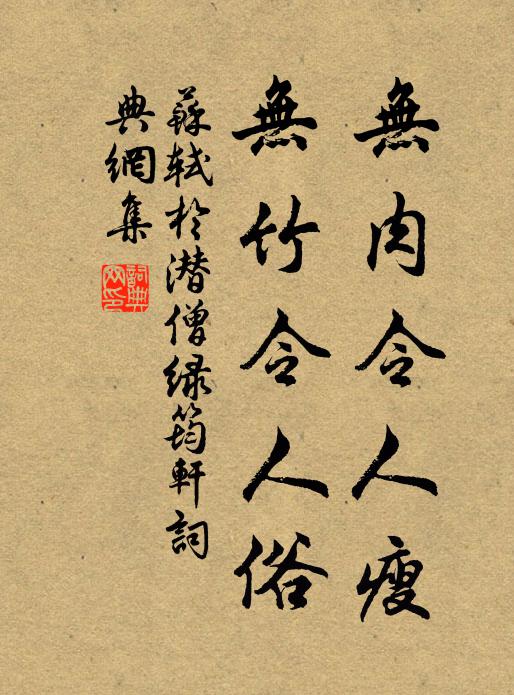 無肉令人瘦
無竹令人俗
蘇軾於潛僧緑筠軒詞
典網集
詞典網印